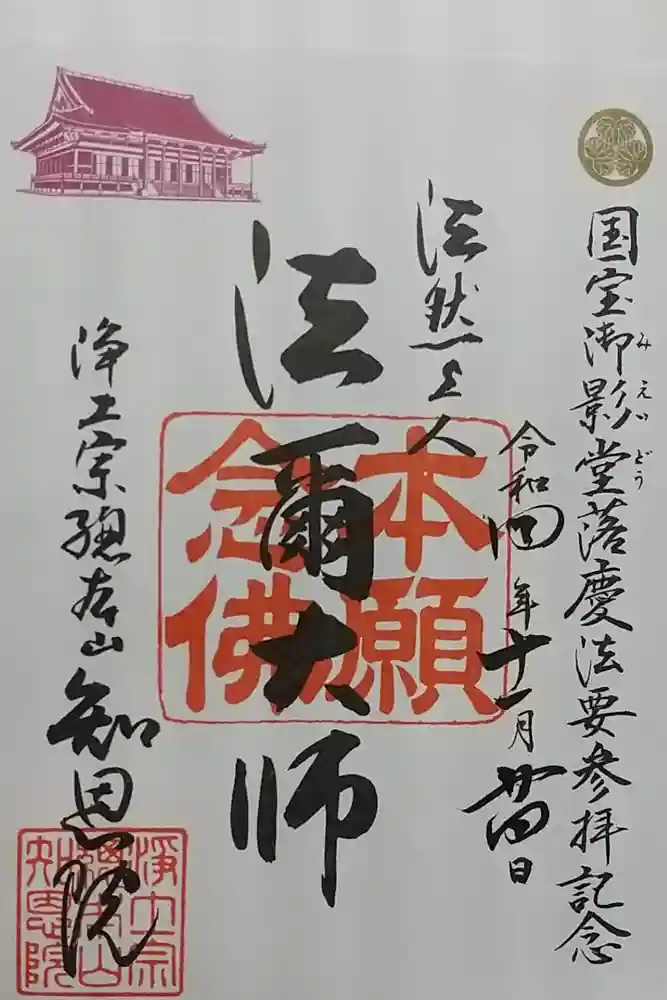 国宝御影堂落慶法要参拝記念
みえいどう
令和四年十一月廿四日
法然上人
法爾大師
本願
念佛
浄土宗總本山知恩院
淨土宗
總本山
知恩院